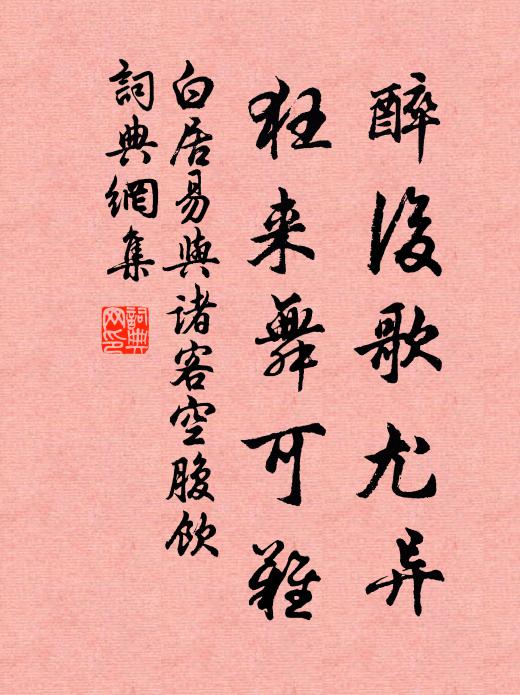 醉後歌尤异
狂来舞可難
白居易與諸客空腹飲
詞典網集
詞典網印